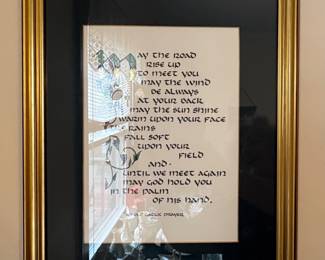 May the road
rise up
to meet you
may the wind
be always
at your back
may the sun shine
warm upon your face
the rains
fall soft
upon your
field
and·
until we meet again
may God hold you
in the palm
of his hand.
Gaelic Prayer